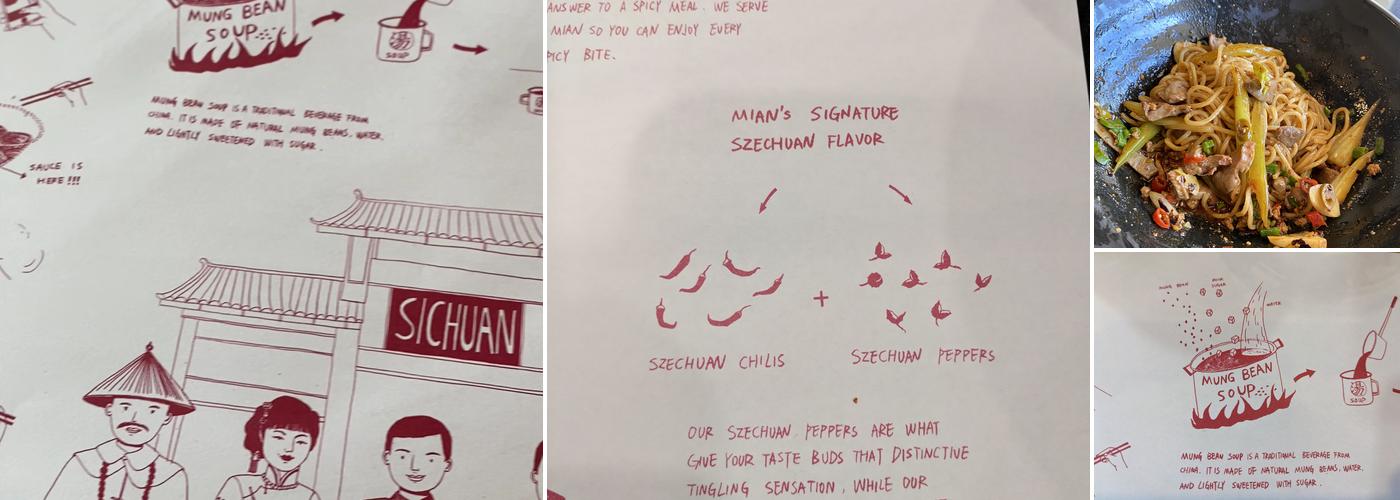 MUNG BEAN
SOUP
SOUP
MUNG BEAN SOUP IS A TRADITIONAL BEVERAGE FROM
CHINA. IT IS MADE OF NATURAL MUNG BEANS, WATER,
AND LIGHTLY SWEETENED WITH SUGAR.
SAUCE IS
HERE!!!
SICHUAN
ANSWER TO A SPICY MEAL. WE SERVE
MIAN SO YOU CAN ENJOY EVERY
BITE.
MIAN'S SIGNATURE
SZECHUAN FLAVOR
+
SZECHUAN CHILIS
SZECHUAN PEPPERS
OUR SZECHUAN PEPPERS ARE WHAT
GIVE YOUR TASTE BUDS THAT DISTINCTIVE
TINGLING SENSATION, WHILE OUR
MUNG BEAN
SUGAR
WATER
MUNG BEAN
SOUP
SOUP
MUNG BEAN SOUP IS A TRADITIONAL BEVERAGE FROM
CHINA. IT IS MADE OF NATURAL MUNG BEANS, WATER,
AND LIGHTLY SWEETENED WITH SUGAR.